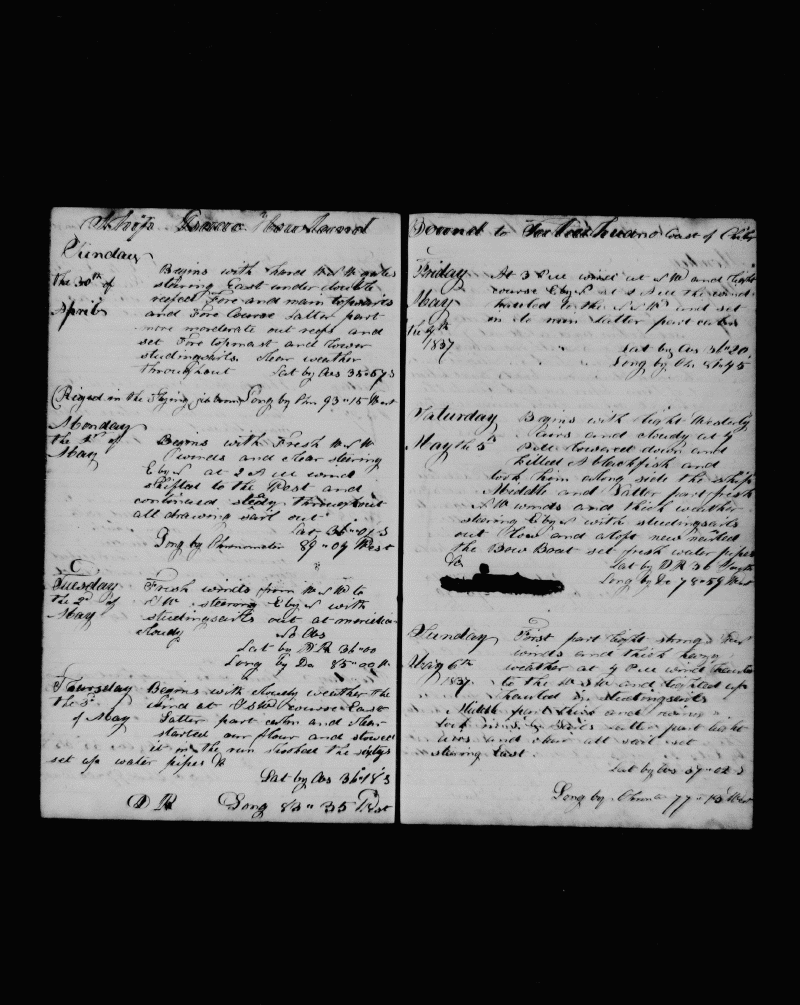 Sunday
the 30th of
April
Begins with hard W N W gales
stearing East under double
reefed fore and main topsails
and Fore Course Latter part
more moderate out reefs and
set Fore topmast and lower
studingsails Clear weather
throughout Lat by Obs 35"57 S
(Riged in the Flying jib boom Long by Chr 93"15 West
Monday
the 1st of
May
Begins with Fresh W N W
winds and clear stearing
E by N at 2 A M wind
shifted to the West and
continued steady throughout
all drawing sail out
Lat 36"01 S
Long by Chronometer 89"09 West
Tuesday
the 2d of
May
Fresh winds from W N W to
S W stearing E by N with
studingsails out at meridian
cloudy No Obs
Lat by D R 36"00
Long by Do 85"00 W
Thursday
the 3
of May
Begins with cloudy weather the
wind at course East
Latter part calm and clear
started our flour and stowed
it in the run
set up water pipes &
Lat by Obs 36"18 S
D R Long 83"35 West
Bound to coast of Chily
Friday
May
the 4th
1837
At 3 P M wind at and light
course E by N at the wind
hauled to the and set
in to main Latter part calm
Lat by Obs 36"20
Long by Chr
Saturday
May the 5th
Begins with light Westerly
airs and cloudy at 4
P M lowered down and
killed A blackfish and
took him along side the ship
Middle and Latter part fresh
N W winds and thick weather
stearing E by N with studingsails
out
the Bow Boat set fresh water pipes
&c
Lat by D R 36 South
Long by Do 78"59 West
Sunday
May 6th
1837
First part light
winds and thick hazy
weather at 4 P M wind hauled
to the W S W and lighted up
hauled in studingsails
Middle part thick and
took in Latter part light
airs and clear all sail set
stearing East
Lat by Obs 37"02 S
Long by Chron 77"13 West